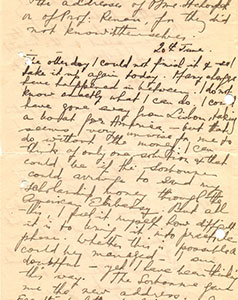 the addresses of Mme Halonyck
or of Prof. Renou, for they did
not know themselves.
20th June.
The other day I could not finish it & so I
take it up again today. Many changes
have happened in between. I do not
know exactly what I can do, I could
have gone away from London, taking
a boat for America, but that
seems very unwise for me to
do without the money. I can
think of only one solution & that
could be if the Sorbonne
could arrange to send my
scholarship money through the
American Embassy. But all
this, I feel it myself how difficult
it is to bring it into practical
phase. Whether this is possible
could be managed I am
doubtful – yet, I have been thinking
this way. The Sorbonne gave
me the new address